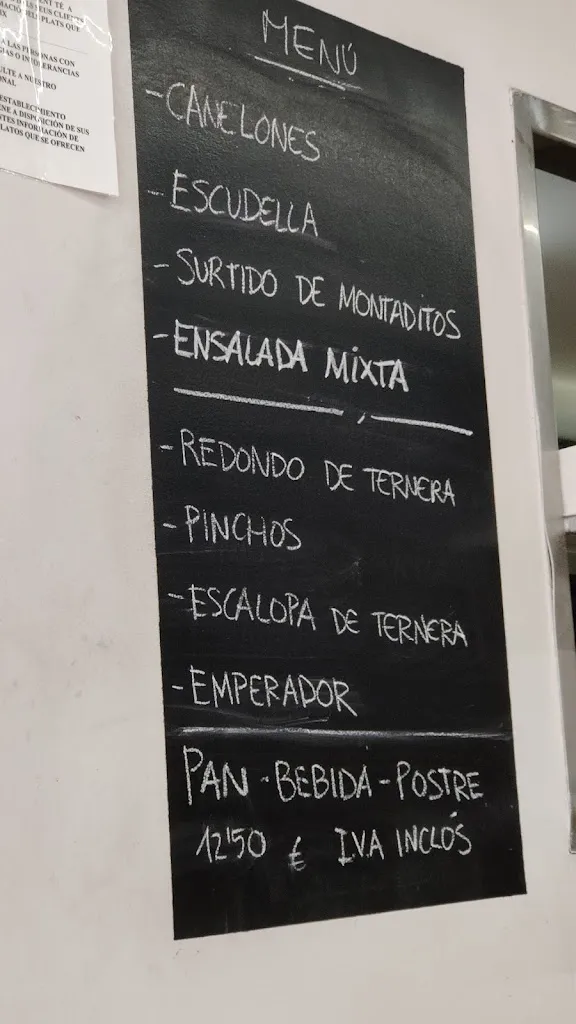 ENT TÉ A
S SEUS CLIENTS
MACIÓ DELS PLATS QUE
A LAS PERSONAS CON
GIAS O INTOLERANCIAS
SULTE A NUESTRO
ONAL
ESTABLECIMIENTO
ENE A DISPOSICIÓN DE SUS
NTES INFORMACIÓN DE
PLATOS QUE SE OFRECEN
MENÚ
-CANELONES
-ESCUDELLA
-SURTIDO DE MONTADITOS
-ENSALADA MIXTA
-REDONDO DE TERNERA
-PINCHOS
-ESCALOPA DE TERNERA
-EMPERADOR
PAN-BEBIDA-POSTRE
12'50 € IVA INCLÓS